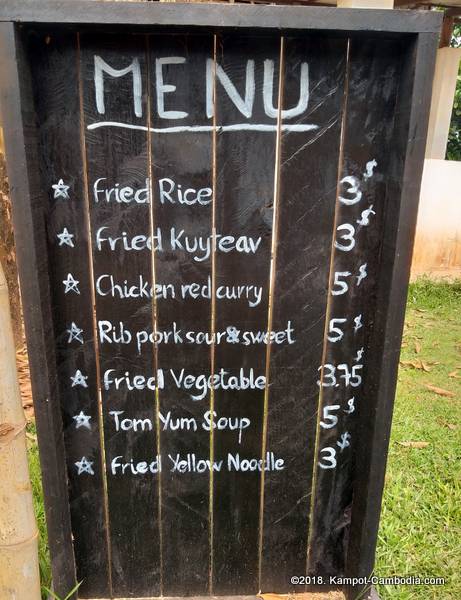 MENU
☆ Fried Rice 3$
☆ Fried Kuyteav 3$
☆ Chicken red curry 5$
☆ Rib pork sour & sweet 5$
☆ Fried Vegetable 3.75$
☆ Tom Yum Soup 5$
☆ Fried Yellow Noodle 3$
©2018. Kampot-Cambodia.com